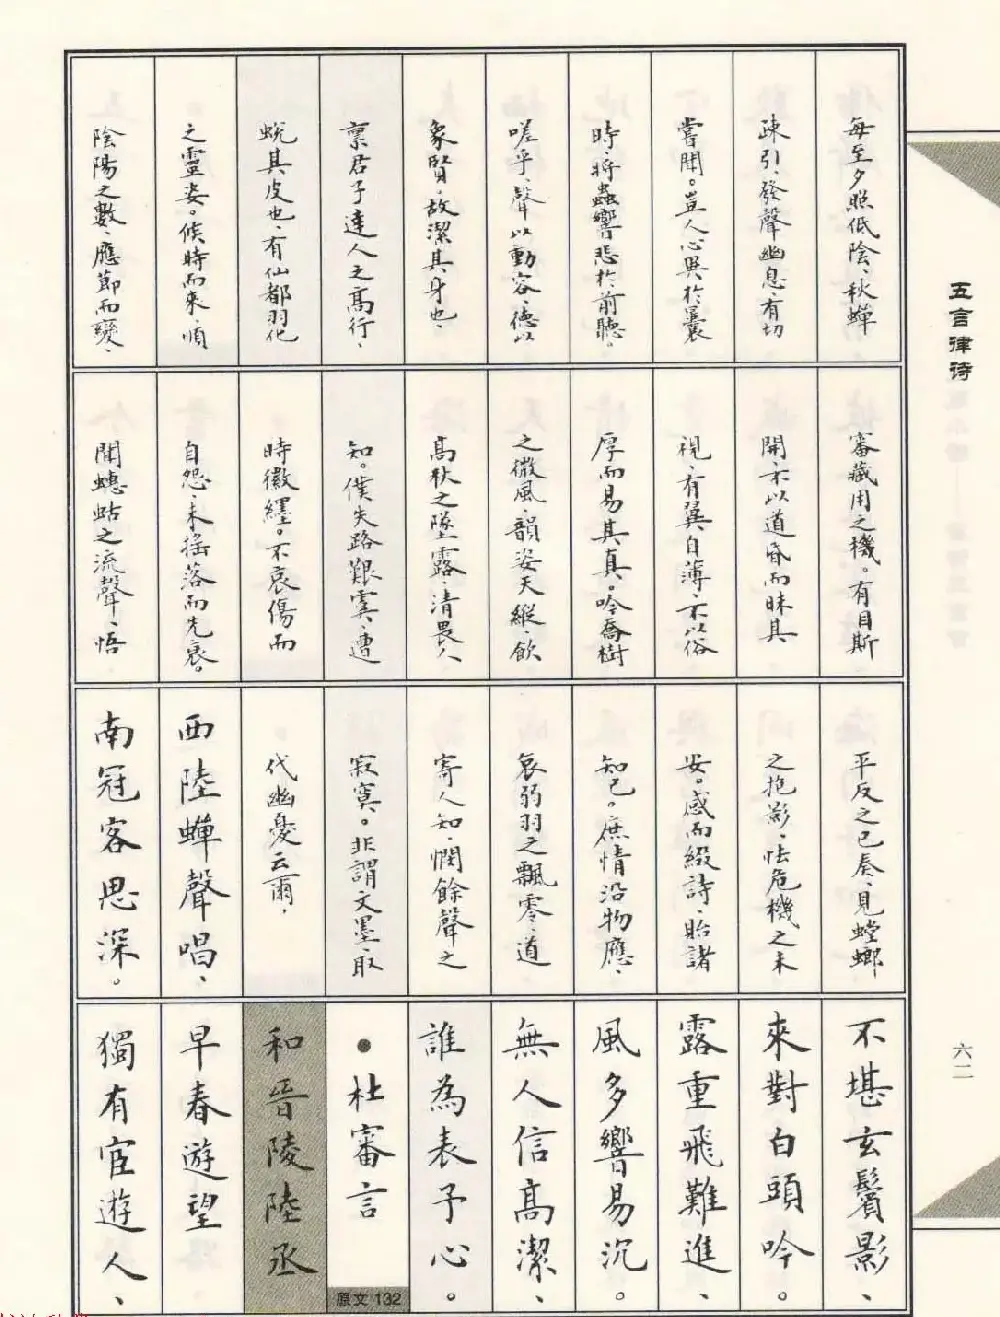 每至夕照低陰、秋蟬
疎引、發聲幽息、有切
嘗聞。豈人心異於曩
時、將蟲響悲於前聽。
嗟乎、聲以動容、德以
象賢、故潔其身也、
禀君子達人之高行、
蛻其皮也、有仙都羽化
之靈姿。候時而來、順
陰陽之數、應節而變、
審藏用之機。有目斯
開、不以道昏而昧其
視、有翼自薄、不以俗
厚而易其真。吟喬樹
之微風、韻姿天縱、飲
高秋之墜露、清畏人
知。僕失路艱虞、遭
時徽纆。不哀傷而
自怨、未搖落而先衰。
聞蟪蛄之流聲、悟
平反之已奏、見螳螂
之抱影、怯危機之未
安。感而綴詩、貽諸
知己。庶情沿物應、
哀弱羽之飄零、道
寄人知、憫餘聲之
寂寞。非謂文墨、取
代幽憂云爾、
西陸蟬聲唱、
南冠客思深。
不堪玄鬢影、
來對白頭吟。
露重飛難進、
風多響易沉。
無人信高潔、
誰為表予心。
●杜審言
原文 132
和晉陵陸丞
早春遊望
獨有宦遊人、
五言律诗
六二